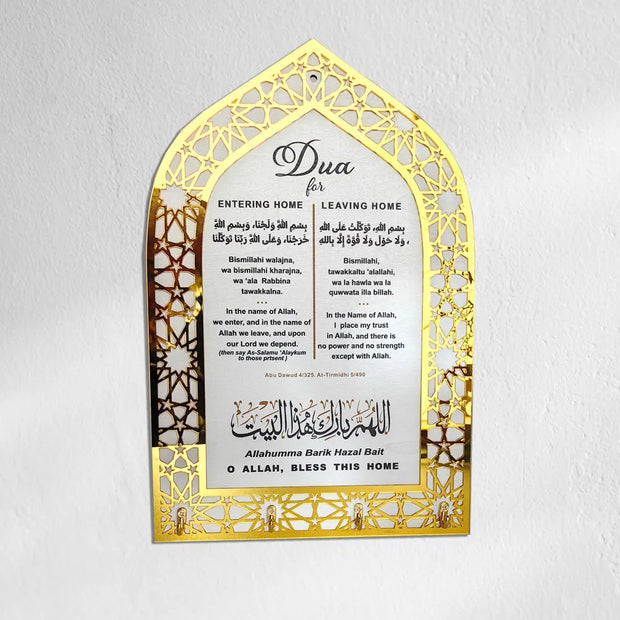 Dua
for
ENTERING HOME
بِسْمِ اللَّهِ وَلَجْنَا، وَبِسْمِ اللَّهِ
خَرَجْنَا، وَعَلَى اللَّهِ رَبِّنَا تَوَكَّلْنَا
Bismillahi walajna,
wa bismillahi kharajna,
wa 'ala Rabbina
tawakkalna.
...
In the name of Allah,
we enter, and in the name of
Allah we leave, and upon
our Lord we depend.
(then say As-Salamu 'Alaykum
to those prtsent )
LEAVING HOME
بِسْمِ اللَّهِ، تَوَكَّلْتُ عَلَى اللَّهِ
، وَلَا حَوْلَ وَلَا قُوَّةَ إِلَّا بِاللهِ
Bismillahi,
tawakkaltu 'alallahi,
wa la hawla wa la
quwwata illa billah.
...
In the Name of Allah,
I place my trust
in Allah, and there is
no power and no strength
except with Allah.
Abu Dawud 4/325, At-Tirmidhi 5/490
اللهم بارك هذا البيت
Allahumma Barik Hazal Bait
O ALLAH, BLESS THIS HOME